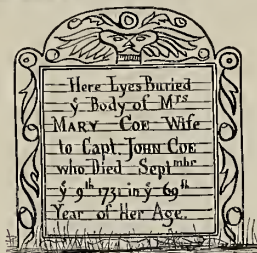 Here Lyes Buried
ẏ Body of Mrs
MARY COE Wife
to Capt. JOHN COE
who Died Septmbr
ẏ 9th 1731 in ẏ 69th
Year of Her Age.